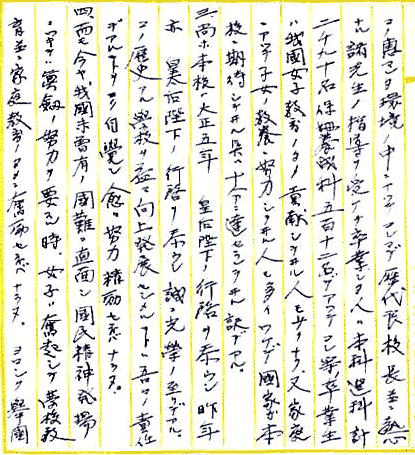 コノ恵マレタ環境ノ中ニアツテ歴代長校長並ニ熱心
ナル諸先生ノ指導ヲ受ケテ卒業シタ人ハ本科選科計
二千九十名保姆養成科五百十二名デアツテコレ等ノ卒業生
ハ我国女子教育ノタメ貢献シツツアル人モ少ナクナク又家庭
ニアツテ子女ノ教養ニ努力シツツアル人モ多イワケデ国家ガ本
校ニ期待シツツアル点ハ十分ニ達セラレツツアル訳デアル。
三、尚ホ本校ハ大正五年 皇后陛下ノ行啓ヲ忝ウシ昨年
亦 皇后陛下ノ行啓ヲ忝ウシ誠ニ光栄ノ至リデアル。
コノ歴史アル学校ヲ益々向上発展セシムルコトハ吾々ノ責任
デアルコトヲヨク自覚シ愈々努力精励セネバナラヌ。
四、而モ今ヤ我国未曽有ノ国難ニ直面シ国民精神発揚
ニ一段ノ奮励ノ努力ヲ要スル時、女子ガ奮起シテ学校教
育並ニ家庭教育ノタメニ奮励セネバナラヌ。ヨロシク挙国